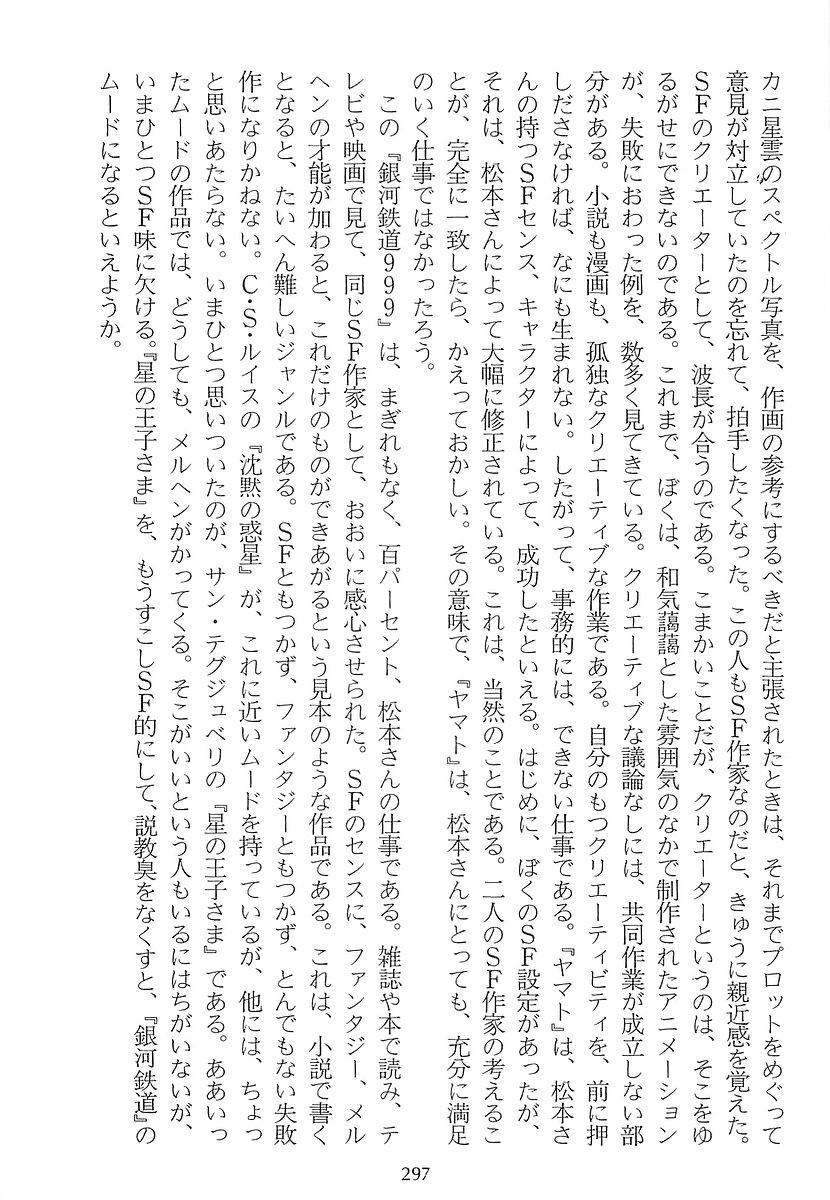 カニ星雲のスペクトル写真を、作画の参考にするべきだと主張されたときは、それまでプロットをめぐって
意見が対立していたのを忘れて、拍手したくなった。この人もＳＦ作家なのだと、きゅうに親近感を覚えた。
ＳＦのクリエーターとして、波長が合うのである。こまかいことだが、クリエーターというのは、そこをゆ
るがせにできないのである。これまで、ぼくは、和気藹藹とした雰囲気のなかで制作されたアニメーション
が、失敗におわった例を、数多く見てきている。クリエーティブな議論なしには、共同作業が成立しない部
分がある。小説も漫画も、孤独なクリエーティブな作業である。自分のもつクリエーティビティを、前に押
しださなければ、なにも生まれない。したがって、事務的には、できない仕事である。『ヤマト』は、松本さ
んの持つＳＦセンス、キャラクターによって、成功したといえる。はじめに、ぼくのＳＦ設定があったが、
それは、松本さんによって大幅に修正されている。これは、当然のことである。二人のＳＦ作家の考えるこ
とが、完全に一致したら、かえっておかしい。その意味で、『ヤマト』は、松本さんにとっても、充分に満足
のいく仕事ではなかったろう。
この『銀河鉄道９９９』は、まぎれもなく、百パーセント、松本さんの仕事である。雑誌や本で読み、テ
レビや映画で見て、同じＳＦ作家として、おおいに感心させられた。ＳＦのセンスに、ファンタジー、メル
ヘンの才能が加わると、これだけのものができあがるという見本のような作品である。これは、小説で書く
となると、たいへん難しいジャンルである。ＳＦともつかず、ファンタジーともつかず、とんでもない失敗
作になりかねない。Ｃ・Ｓ・ルイスの『沈黙の惑星』が、これに近いムードを持っているが、他には、ちょっ
と思いあたらない。いまひとつ思いついたのが、サン・テグジュベリの『星の王子さま』である。ああいっ
たムードの作品では、どうしても、メルヘンがかってくる。そこがいいという人もいるにはちがいないが、
いまひとつＳＦ味に欠ける。『星の王子さま』を、もうすこしＳＦ的にして、説教臭をなくすと、『銀河鉄道』の
ムードになるといえようか。
297